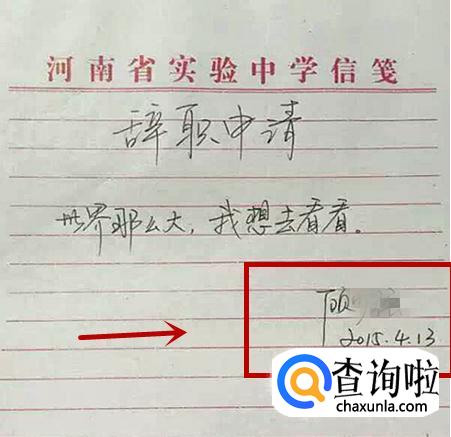 河南省实验中学信笺
辞职申请
世界那么大，我想去看看。
顾
2015.4.13
查询啦
chaxunla.com